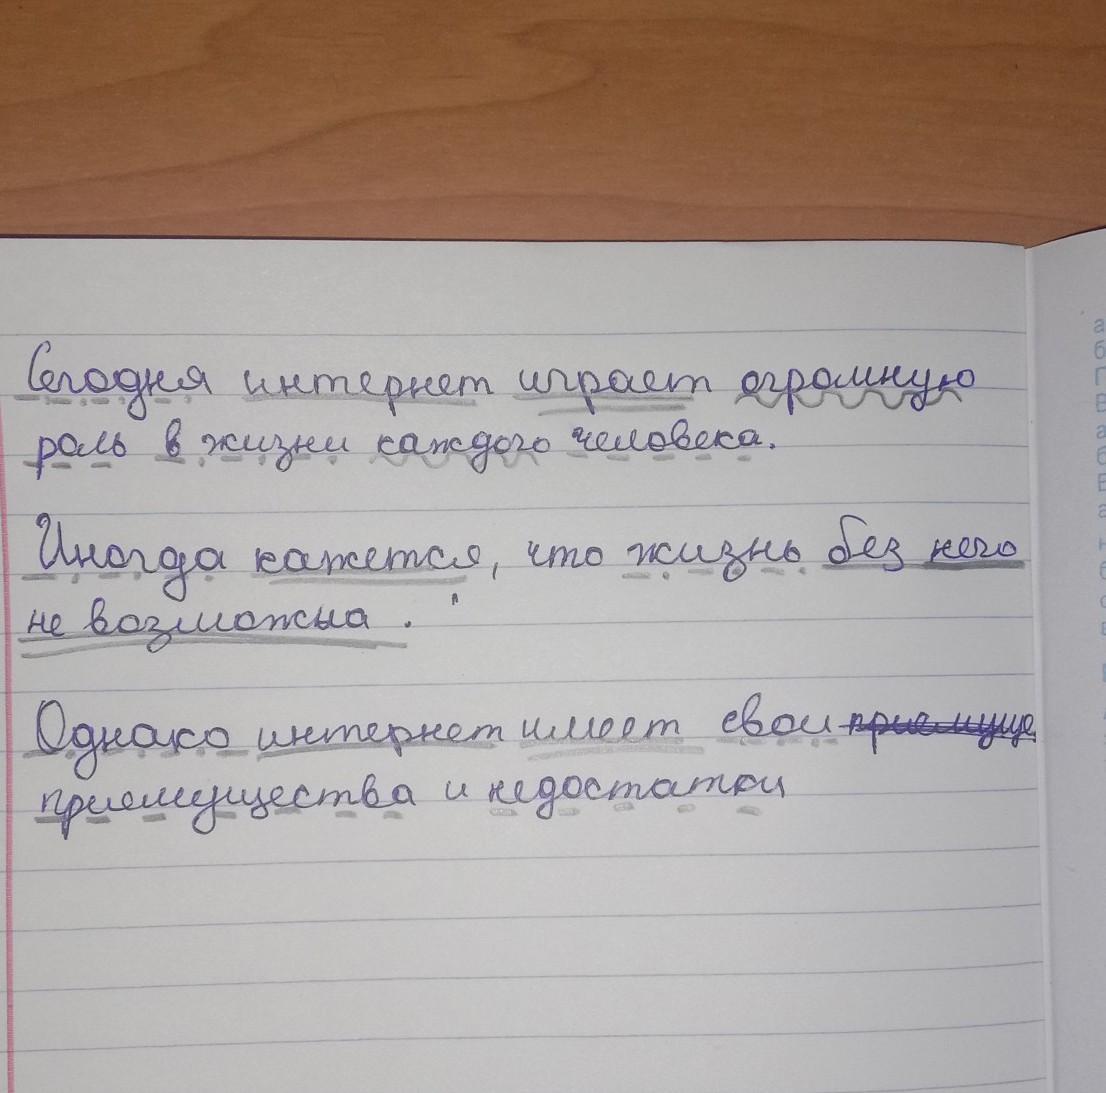 Сегодня интернет играет огромную
роль в жизни каждого человека.
Иногда кажется, что жизнь без него
не возможна.
Однако интернет имеет свои
приемущества и недостатки